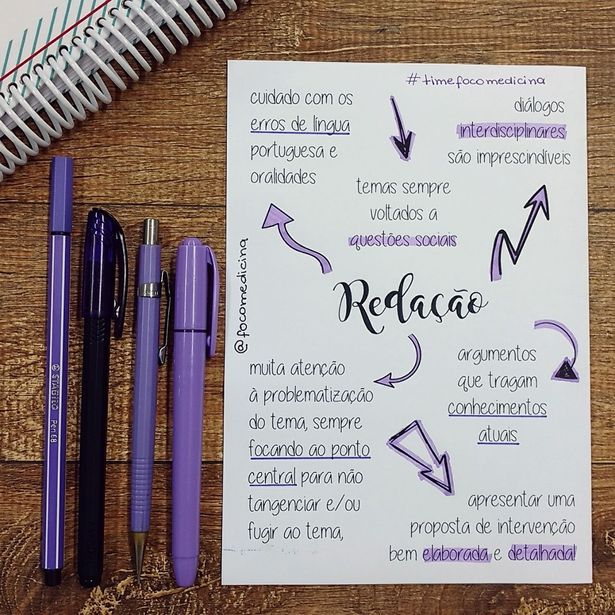 #timefocomedicina
cuidado com os
erros de língua
portuguesa e
oralidades
diálogos
interdisciplinares
são imprescindíveis
temas sempre
voltados a
questões sociais
@focomedicina
Redação
muita atenção
à problematização
do tema, sempre
focando ao ponto
central para não
tangenciar e/ou
fugir ao tema,
argumentos
que tragam
conhecimentos
atuais
apresentar uma
proposta de intervenção
bem elaborada e detalhada!
STABILO Pen 68